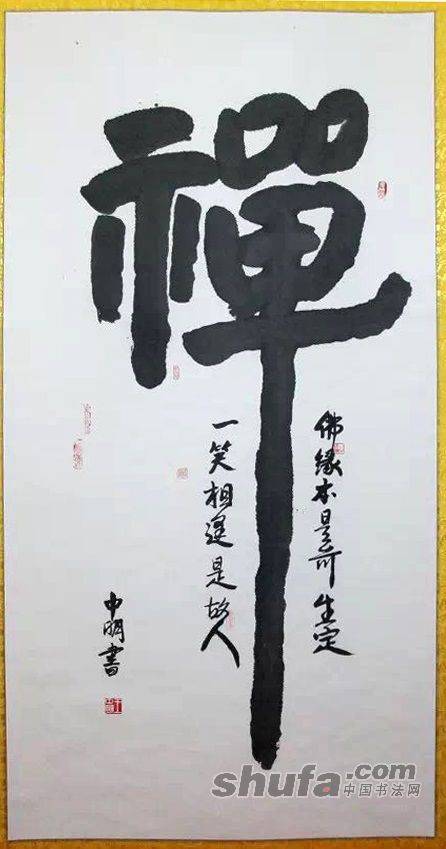 禪
佛緣本是前生定
一笑相逢是故人
中明書
shufa.com
中国书法网